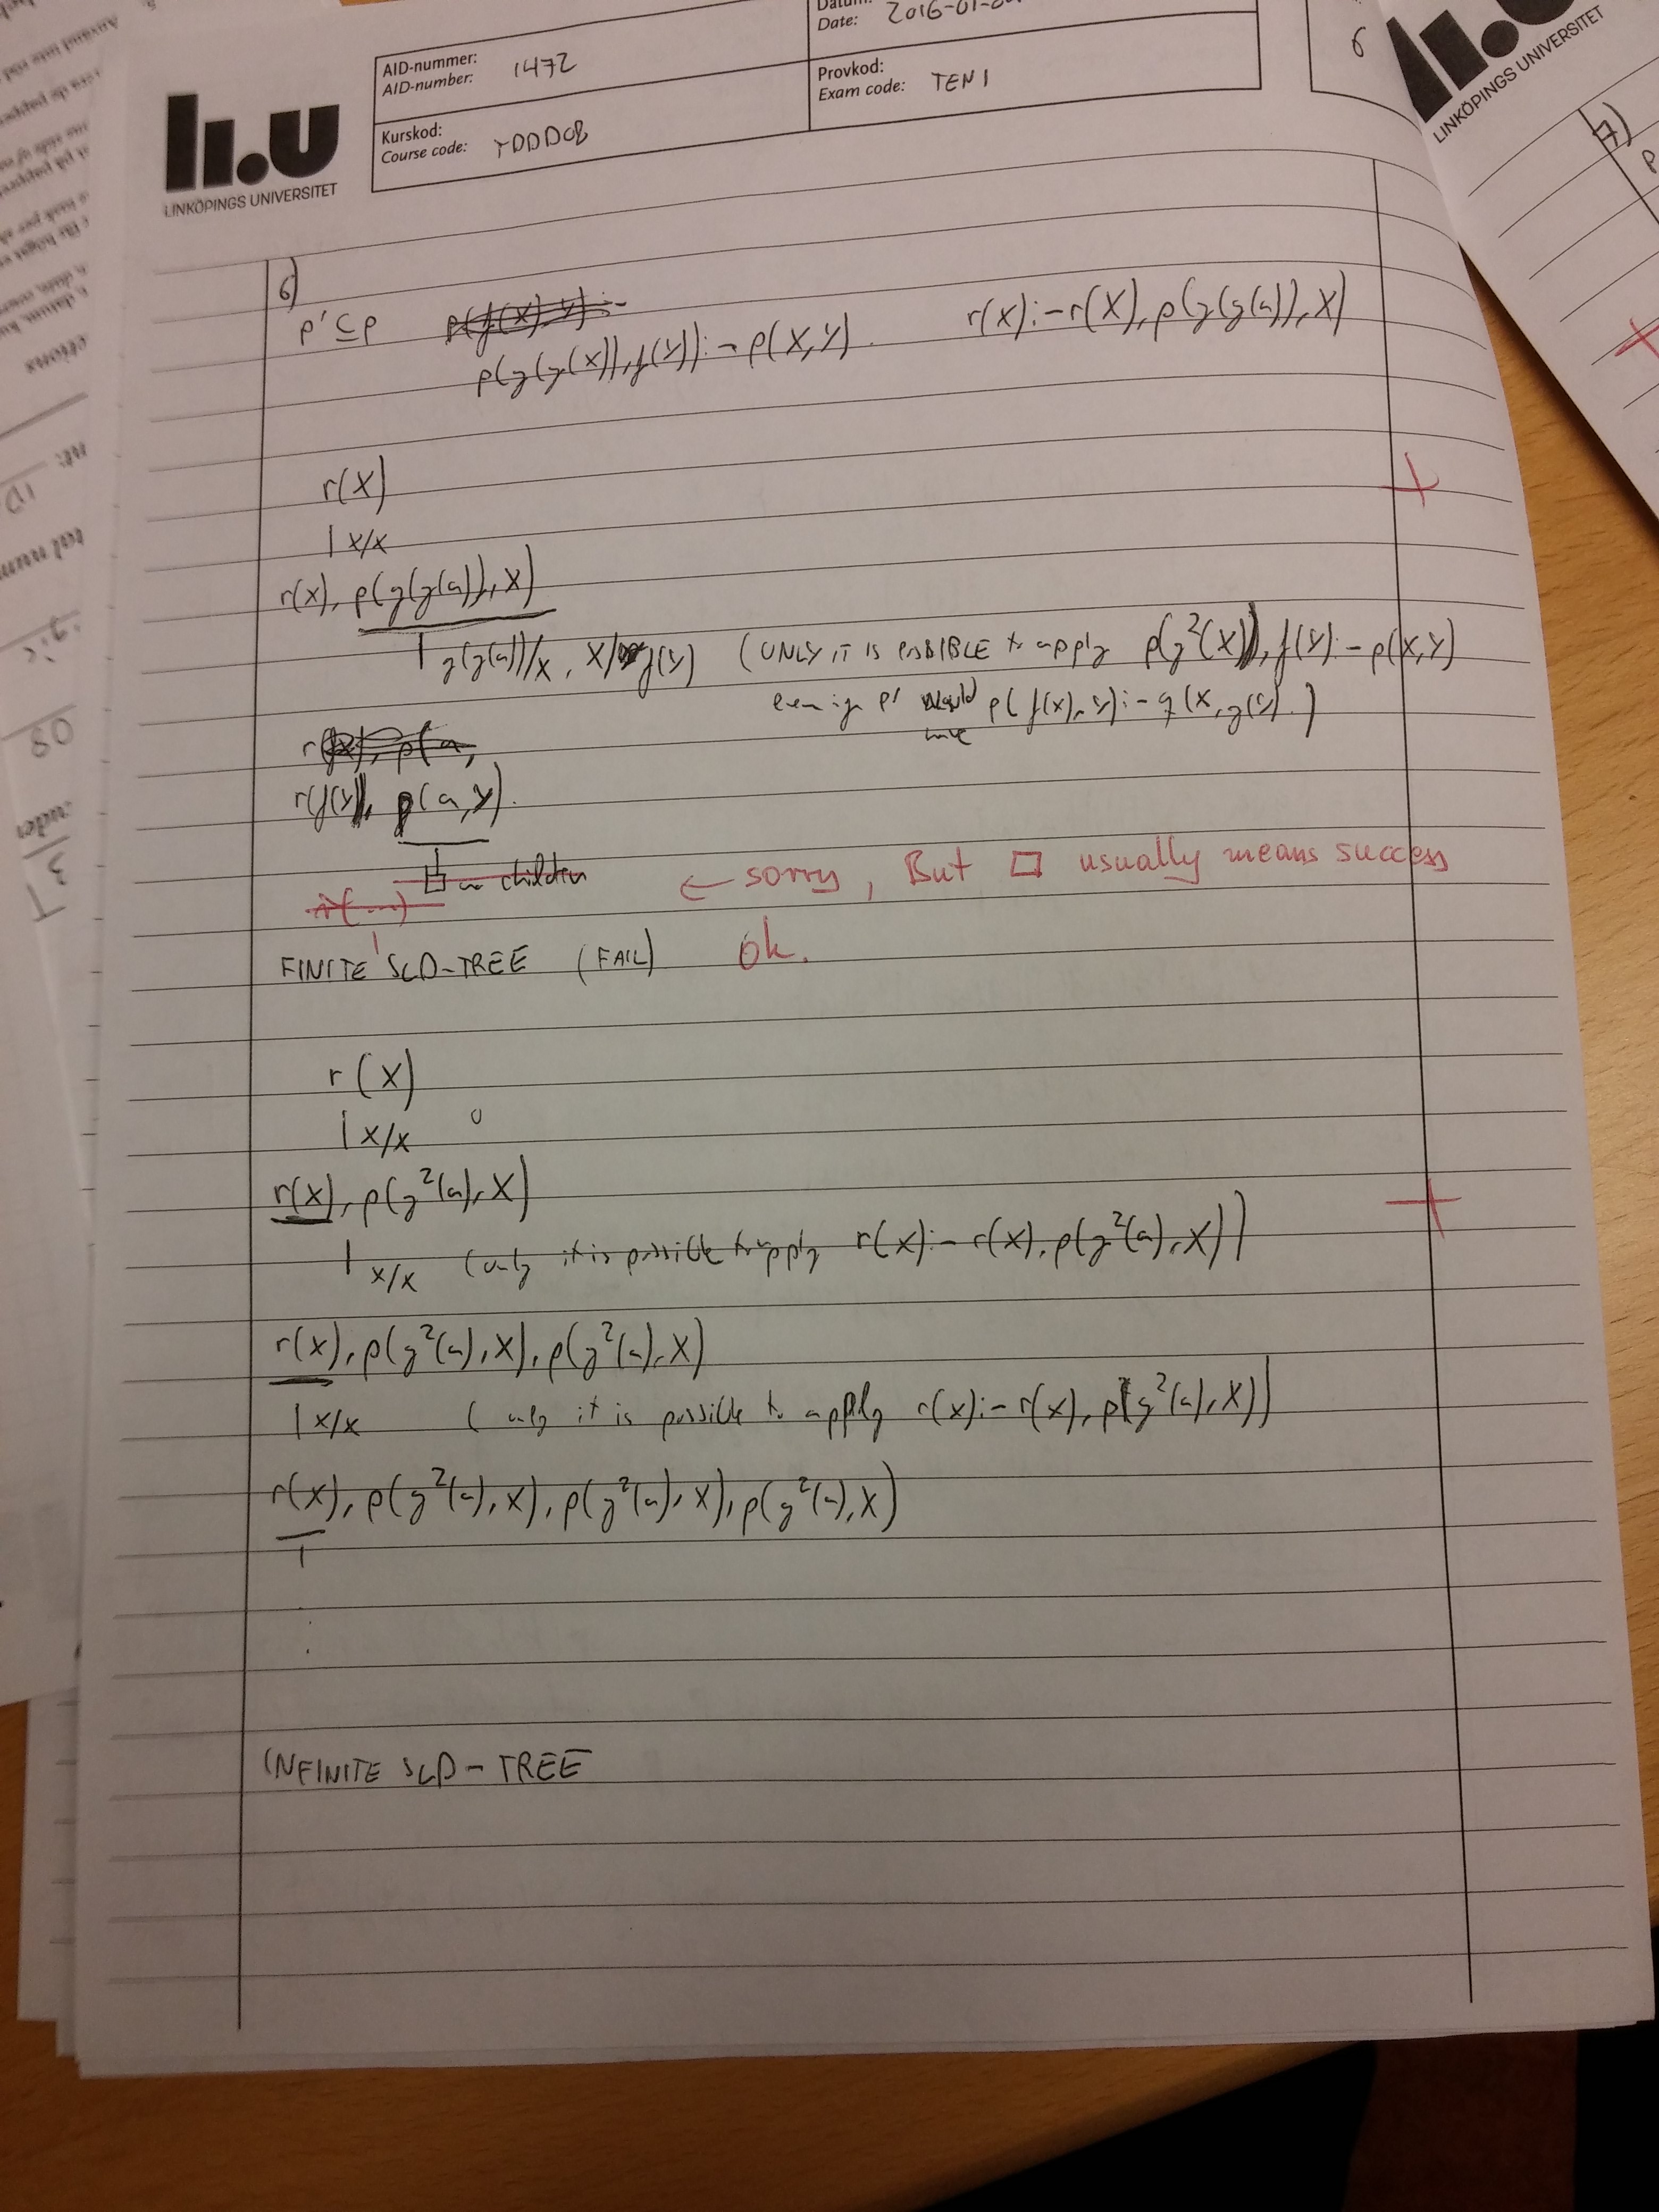 AID-nummer:
AID-number: 1472
Date: 2016-01-
Kurskod:
Course code: TDDD08
Provkod:
Exam code: TEN1
6
li.u
LINKÖPINGS UNIVERSITET
LINKÖPINGS UNIVERSITET
7)
6)
P' ⊆ P
p(g(g(X)), f(Y)) :- p(X,Y).
r(X) :- r(X), p(g(g(a)), X)
r(X)
| X/X
r(X), p(g(g(a)), X)
| g(g(a))/X, X/f(Y) (ONLY IT IS POSSIBLE to apply p(g²(X)), f(Y) :- p(X,Y)
even if P' would have p(f(X), Y) :- q(X, g(Y).)
r(f(Y)), p(a,Y).
□ no children
r(...)
← sorry, But □ usually means success
FINITE SLD-TREE (FAIL) ok.
r(X)
| X/X
r(X), p(g²(a), X)
| X/X (only it is possible to apply r(X) :- r(X), p(g²(a), X))
r(X), p(g²(a), X), p(g²(a), X)
| X/X (only it is possible to apply r(X) :- r(X), p(g²(a), X))
r(X), p(g²(a), X), p(g²(a), X), p(g²(a), X)
INFINITE SLD-TREE